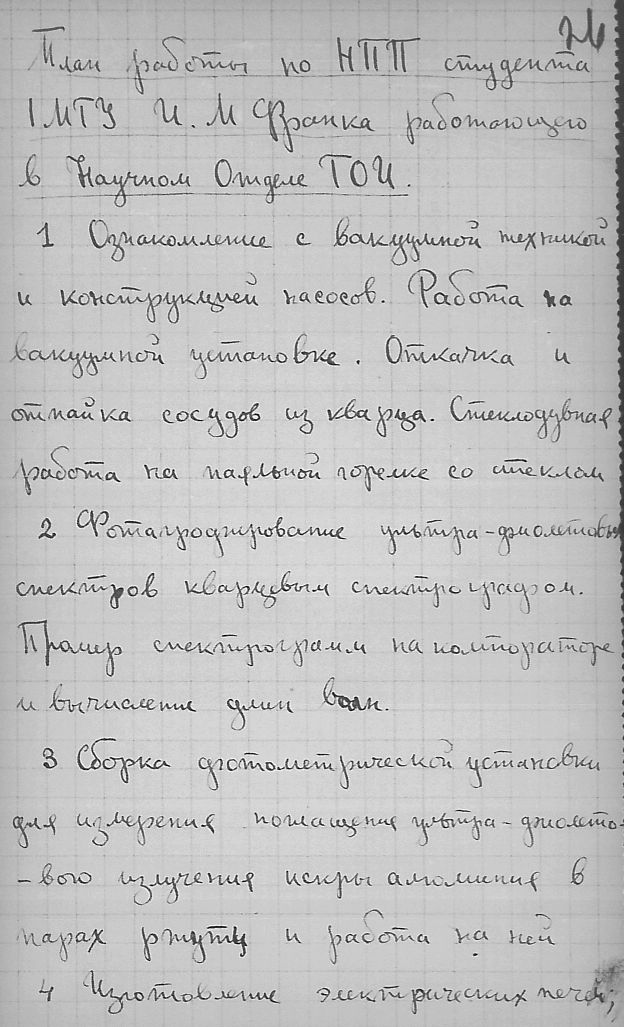 26
План работы по НПП студента
1 МГУ И. М Франка работающего
в Научном Отделе ГОИ.
1 Ознакомление с вакуумной техникой
и конструкцией насосов. Работа на
вакуумной установке. Откачка и
отпайка сосудов из кварца. Стеклодувная
работа на паяльной горелке со стеклом
2 Фотографирование ультра-фиолетовых
спектров кварцевым спектрографом.
Промер спектрограмм на компораторе
и вычисление длин волн.
3 Сборка фотометрической установки
для измерения поглащения ультра-фиолето-
-вого излучения искры алюминия в
парах ртути и работа на ней
4 Изготовление электрических печей,